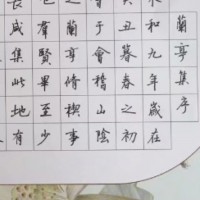 蘭亭集序
和九年歲在
丑暮春之初
于會稽山陰
之蘭亭脩禊事
也羣賢畢至少
長咸集此地有